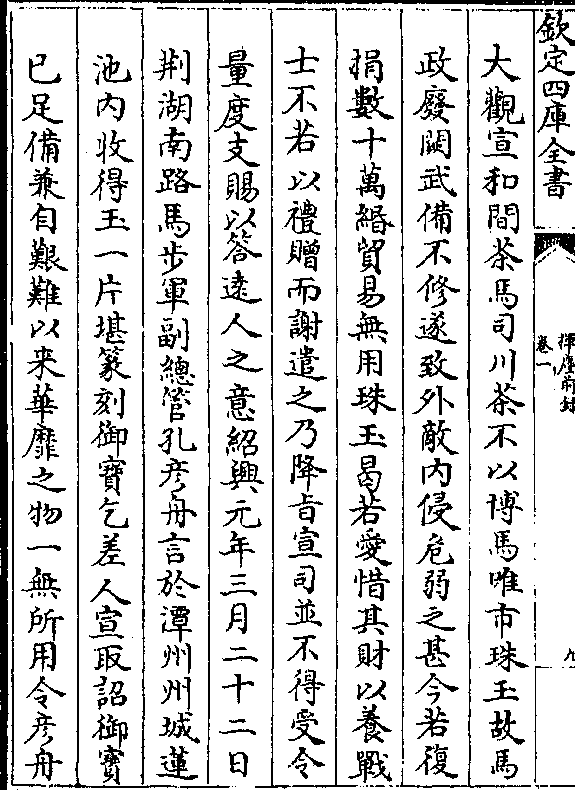 欽定四庫全書
揮麈前録
卷一
九
大觀宣和間茶馬司川茶不以博馬唯市珠玉故馬
政廢闕武備不修遂致外敵内侵危弱之甚今若復
捐數十萬緡貿易無用珠玉曷若愛惜其財以養戰
士不若以禮贈而謝遣之乃降㫖宣司並不得受令
量度支賜以答逺人之意紹興元年三月二十二日
荆湖南路馬步軍副總管孔彦舟言於潭州州城蓮
池内收得玉一片堪篆刻御寶乞差人宣取詔御寶
已足備兼自艱難以来華靡之物一無所用令彦舟